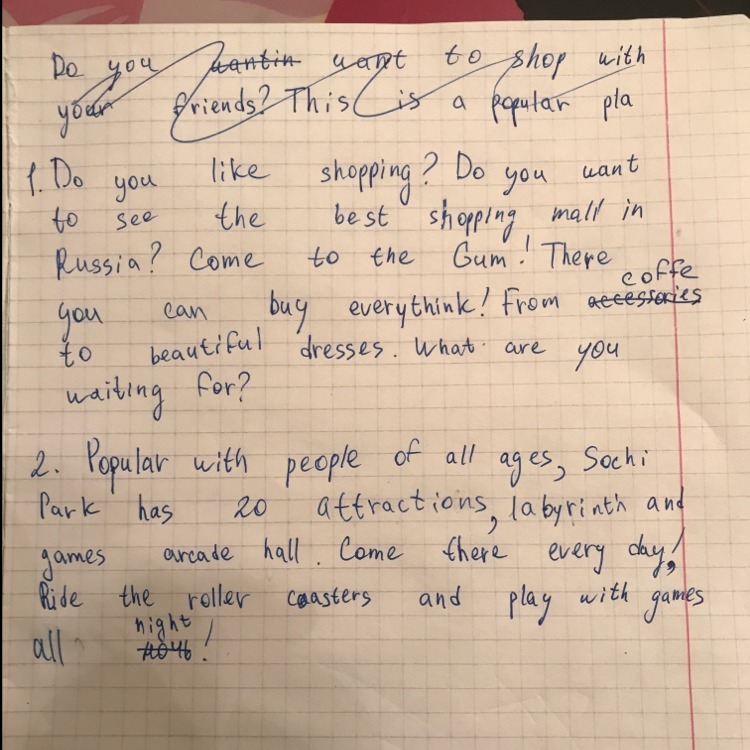 Do you wantin want to shop with
your friends? This is a popular pla
1. Do you like shopping? Do you want
to see the best shopping mall in
Russia? Come to the Gum! There
coffe
you can buy everythink! From accessories
to beautiful dresses. What are you
waiting for?
2. Popular with people of all ages, Sochi
Park has 20 attractions, labyrinth and
games arcade hall. Come there every day!
Ride the roller coasters and play with games
night
all ночь!